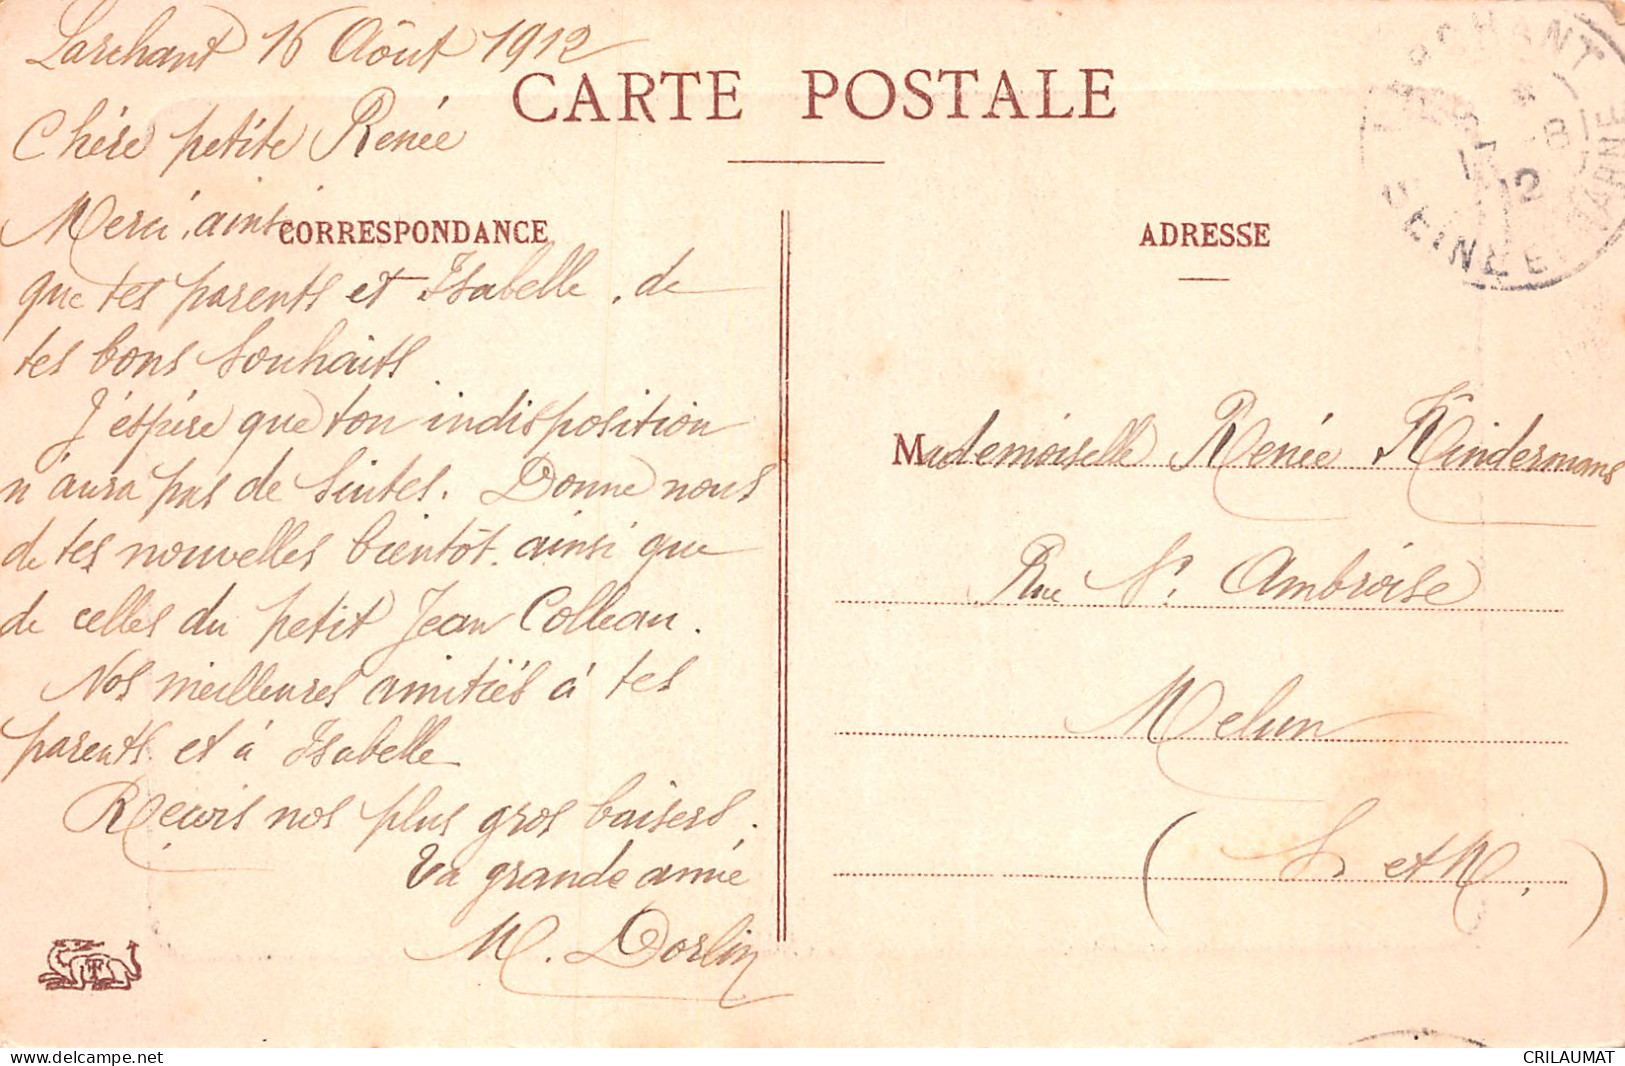 Larchant 16 Août 1912
CARTE POSTALE
Chère petite Renée
Merci, ainsi
CORRESPONDANCE
que tes parents et Isabelle, de
tes bons souhaits
J'éspére que ton indisposition
n'aura pas de suites. Donne nous
de tes nouvelles bientôt. ainsi que
de celles du petit Jean Colleau.
Nos meilleures amitiés à tes
parents et à Isabelle
Reçois nos plus gros baisers.
Ta grande amie
M. Dorlin
ADRESSE
Mademoiselle Renée Kindermans
Rue St. Ambroise
Melun
(S. et M.)
LARCHANT
17 -8
12
SEINE ET MARNE
CRILAUMAT